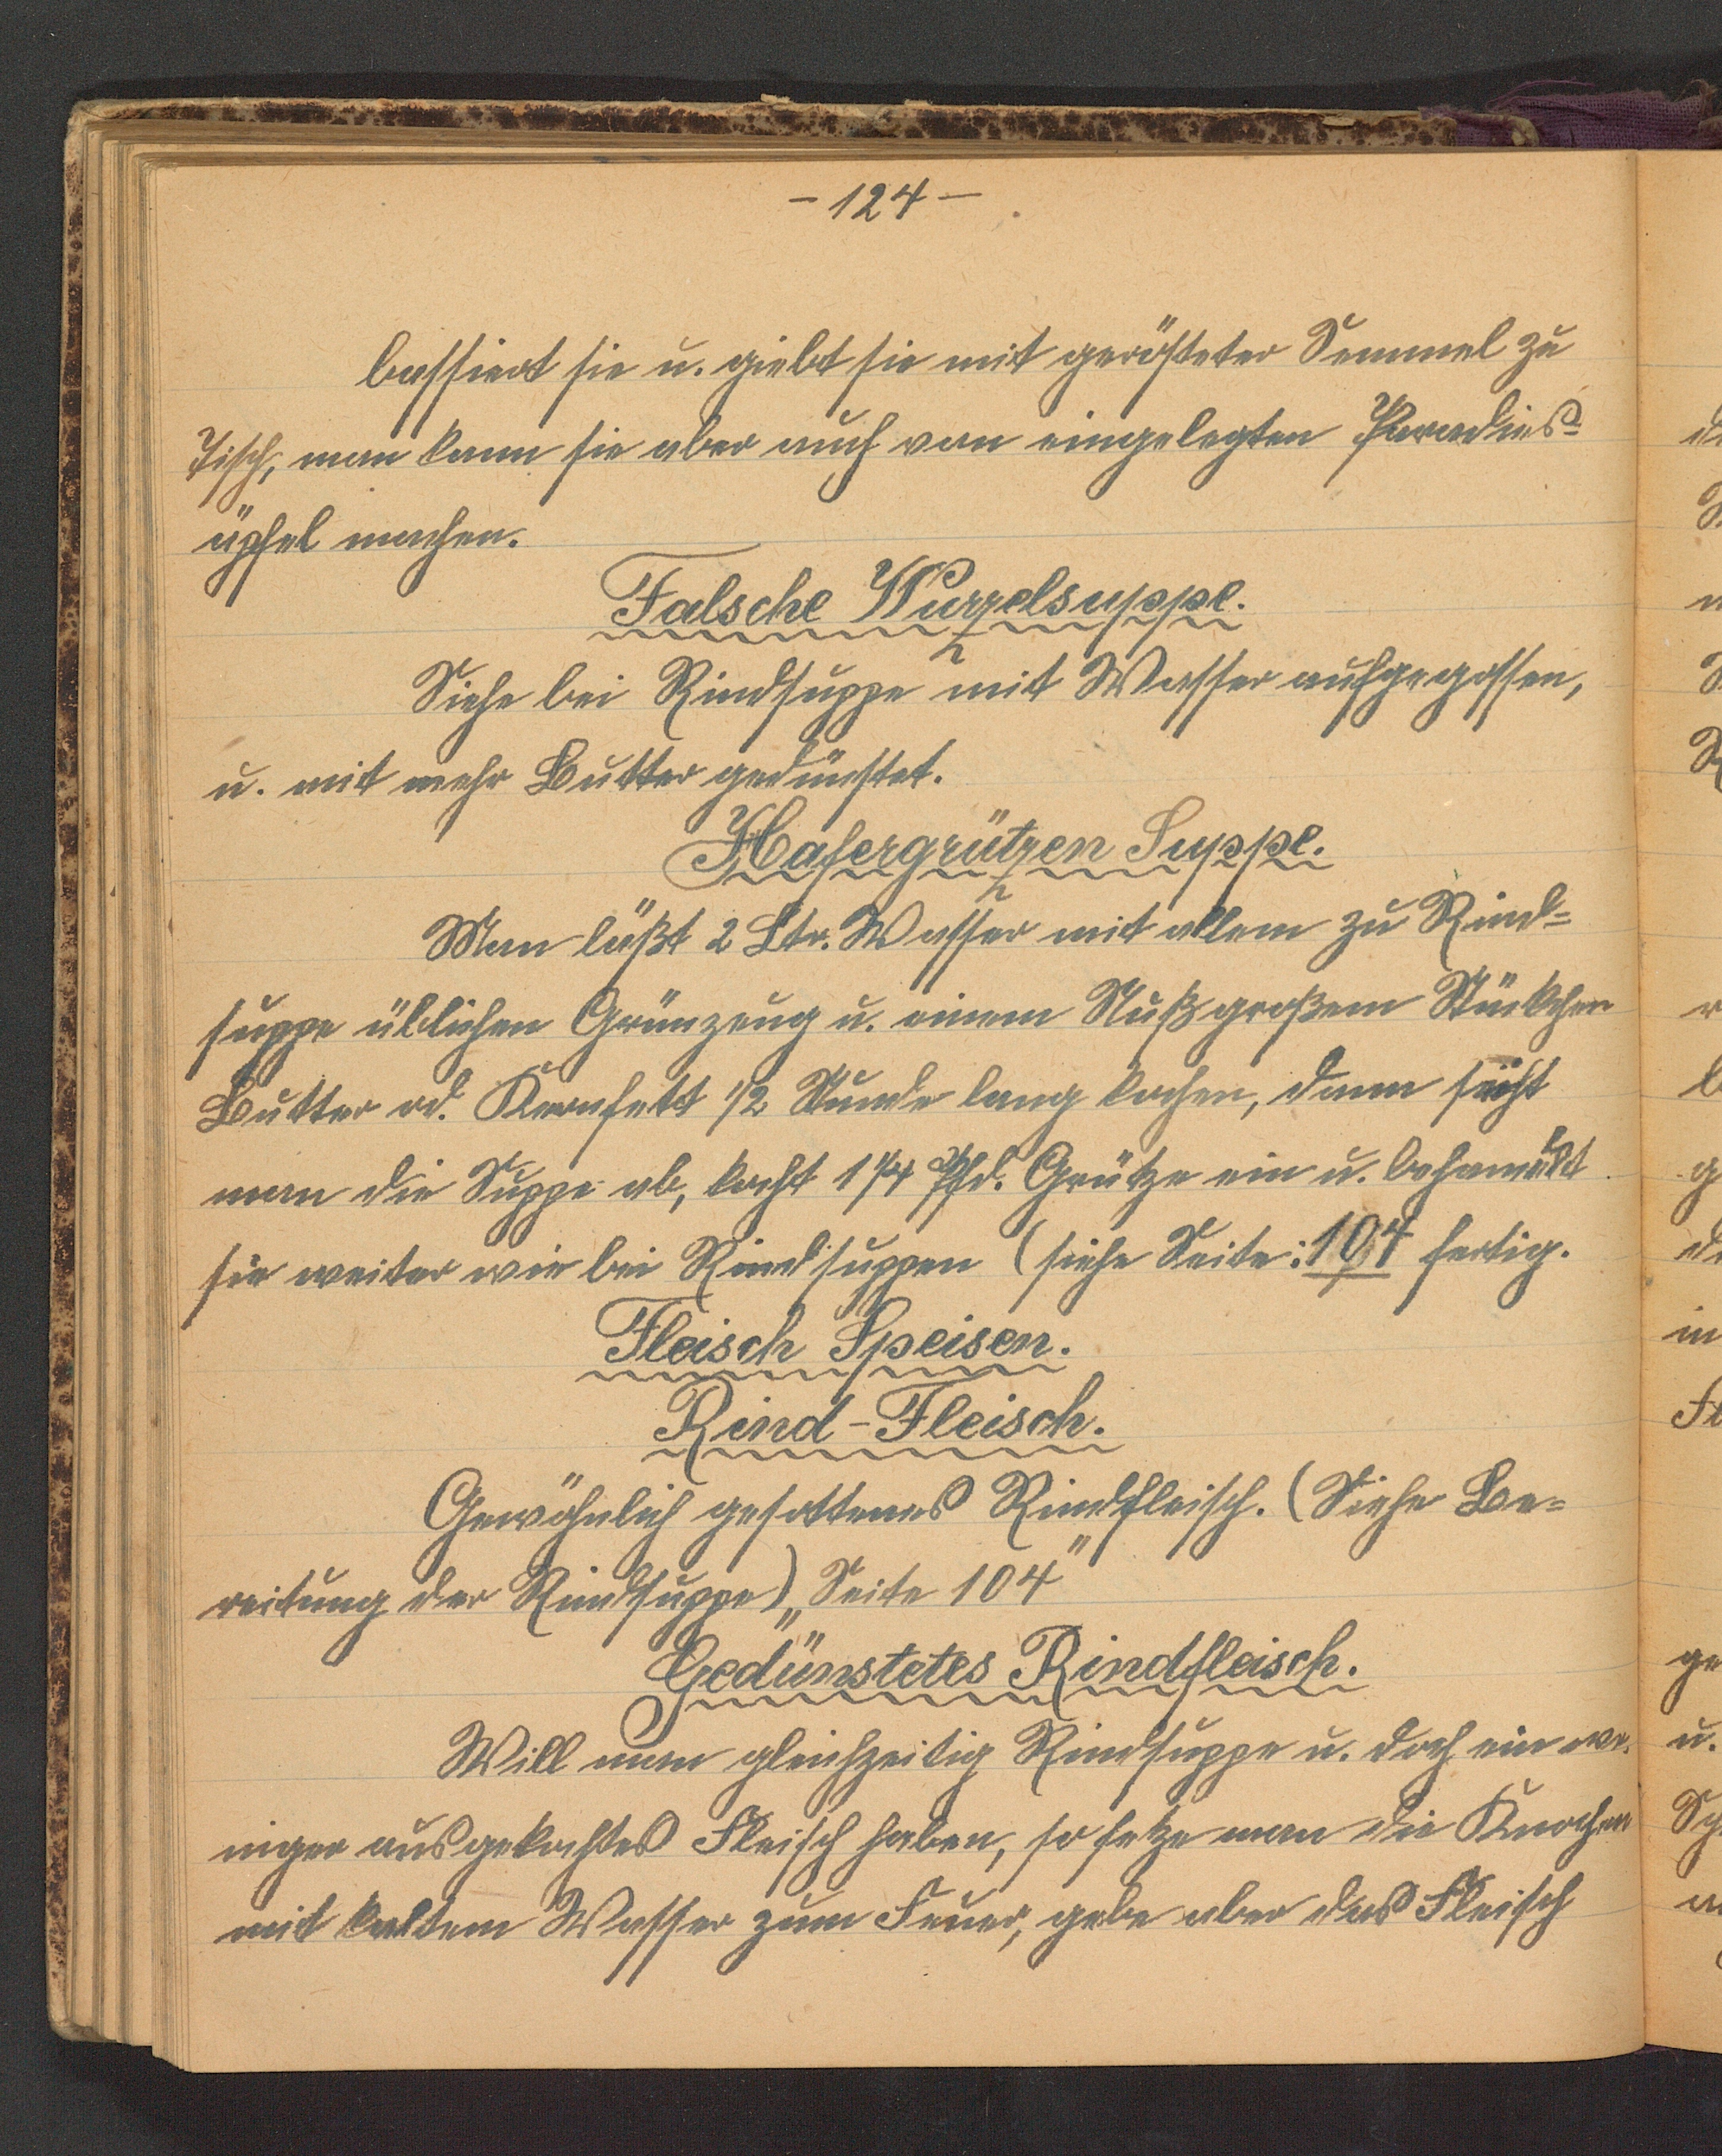 - 124 -
bassiert sie u. giebt sie mit gerösteter Semmel zu
Tisch, man kann sie aber auch von eingelegten Paradies=
äpfel machen.
Falsche Wurzelsuppe.
Siehe bei Rindsuppe mit Wasser aufgegossen,
u. mit mehr Butter gedünstet.
Hafergrützen Suppe.
Man läßt 2 Ltr. Wasser mit allem zu Rind=
suppe üblichen Grünzeug u. einem Nußgroßem Stückchen
Butter od. Kernfett 1/2 Stunde lang kochen, dann seiht
man die Suppe ab, kocht 1/4 Pfd. Grütze ein u. behandelt
sie weiter wie bei Rindsuppen (siehe Seite: 104 fertig.
Fleisch Speisen.
Rind-Fleisch.
Gewöhnlich gesottenes Rindfleisch. (Siehe Be=
reitung der Rindsuppe) „Seite 104"
Gedünstetes Rindfleisch.
Will man gleichzeitig Rindsuppe u. doch ein we-
niger ausgekochtes Fleisch haben, so setze man die Knochen
mit kaltem Wasser zum Feuer, gebe aber das Fleisch